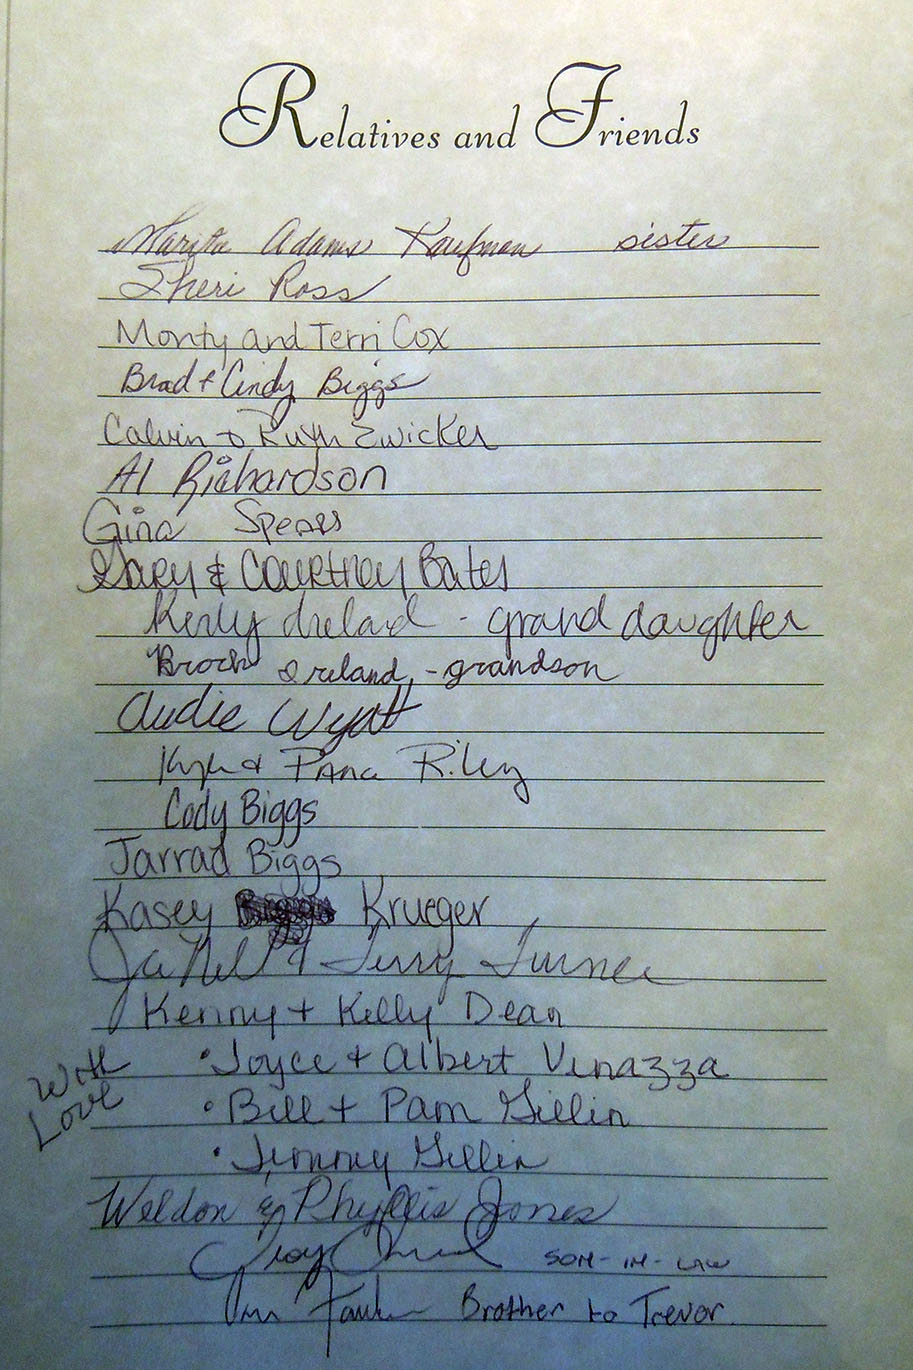 Relatives and Friends
Marita Adams Kaufman sister
Sheri Ross
Monty and Terri Cox
Brad & Cindy Biggs
Calvin & Ruth Zwicker
Al Richardson
Gina Spears
Gary & Courtney Bates
Ireland - grand daughter
Brock Ireland - grandson
Audie Wyatt
Kyle & Riley
Cody Biggs
Jarrad Biggs
Kasey Krueger
JaNell & Terry Turner
Kenny + Kelly Dean
With Love
• Joyce + Albert Venazza
• Bill + Pam Gillin
• Jimmy Gillin
Weldon & Phyllis Jones
Troy SON-IN-LAW
Brother to Trevor